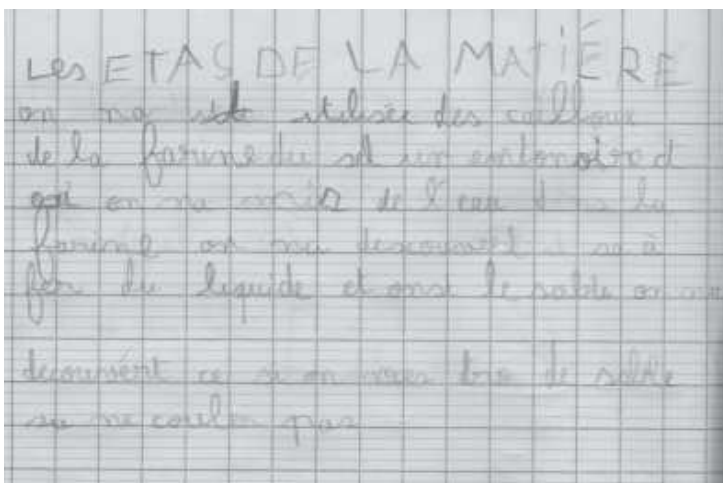 Les ETAS DE LA MATIÉRE
on na utilisée des cailloux
de la farine du sel un entonoire d
on na mis de l'eau dans la
farine on na descouvert sa à
fer du liquide et onsi le sable on na
decouvért ce si on mes tro de sable
sa ne coule pas